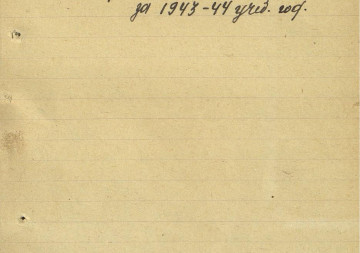 за 1943-44 учеб. год.